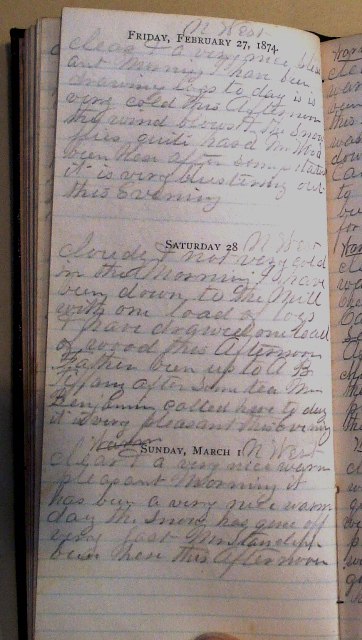 N West
FRIDAY, FEBRUARY 27, 1874.
clear & a very nice pleas
ant Morning I have been
drawing logs to day it is
very cold this Afternoon
the wind blows & the Snow
flies quite hard Mr
been here after some
it is very blustering out
this Evening
SATURDAY 28 N West
Cloudy & not very cold
in the Morning I have
been down to the Mill
with one load of logs
I have drawed one load
of wood this Afternoon
Father been up to A B
Tiffany after some tea Mr
Benjamin called here to day
it is very pleasant this Evening
SUNDAY, MARCH 1 N West
clear & a very nice warm
pleasant Morning it
has been a very nice warm
day the Snow has gone off
very fast Mr
been here this Afternoon